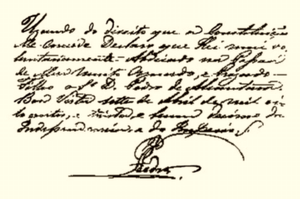 Usando do direito que a Constituição
Me concede Declaro que Hei mui vo-
luntariamente Abdicado na Pessoa
de Meu Muito Amado, e Prezado
Filho o Sr. D. Pedro de Alcantara.
Boa Vista sete de Abril de mil oito
centos, e trinta e hum, decimo da
Independencia e do Imperio.
Pedro